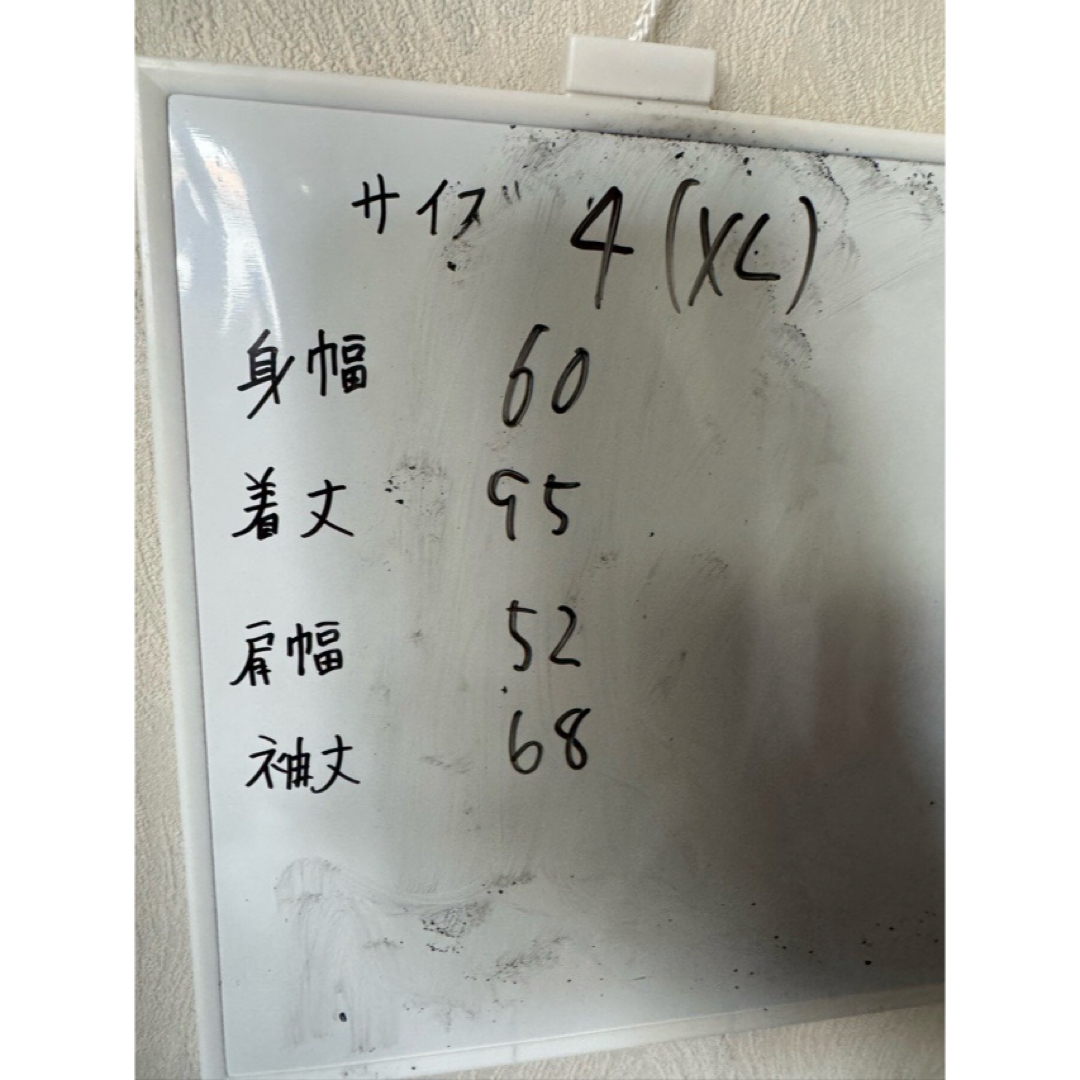 サイズ 4 (XL)
身幅 60
着丈 95
肩幅 52
袖丈 68